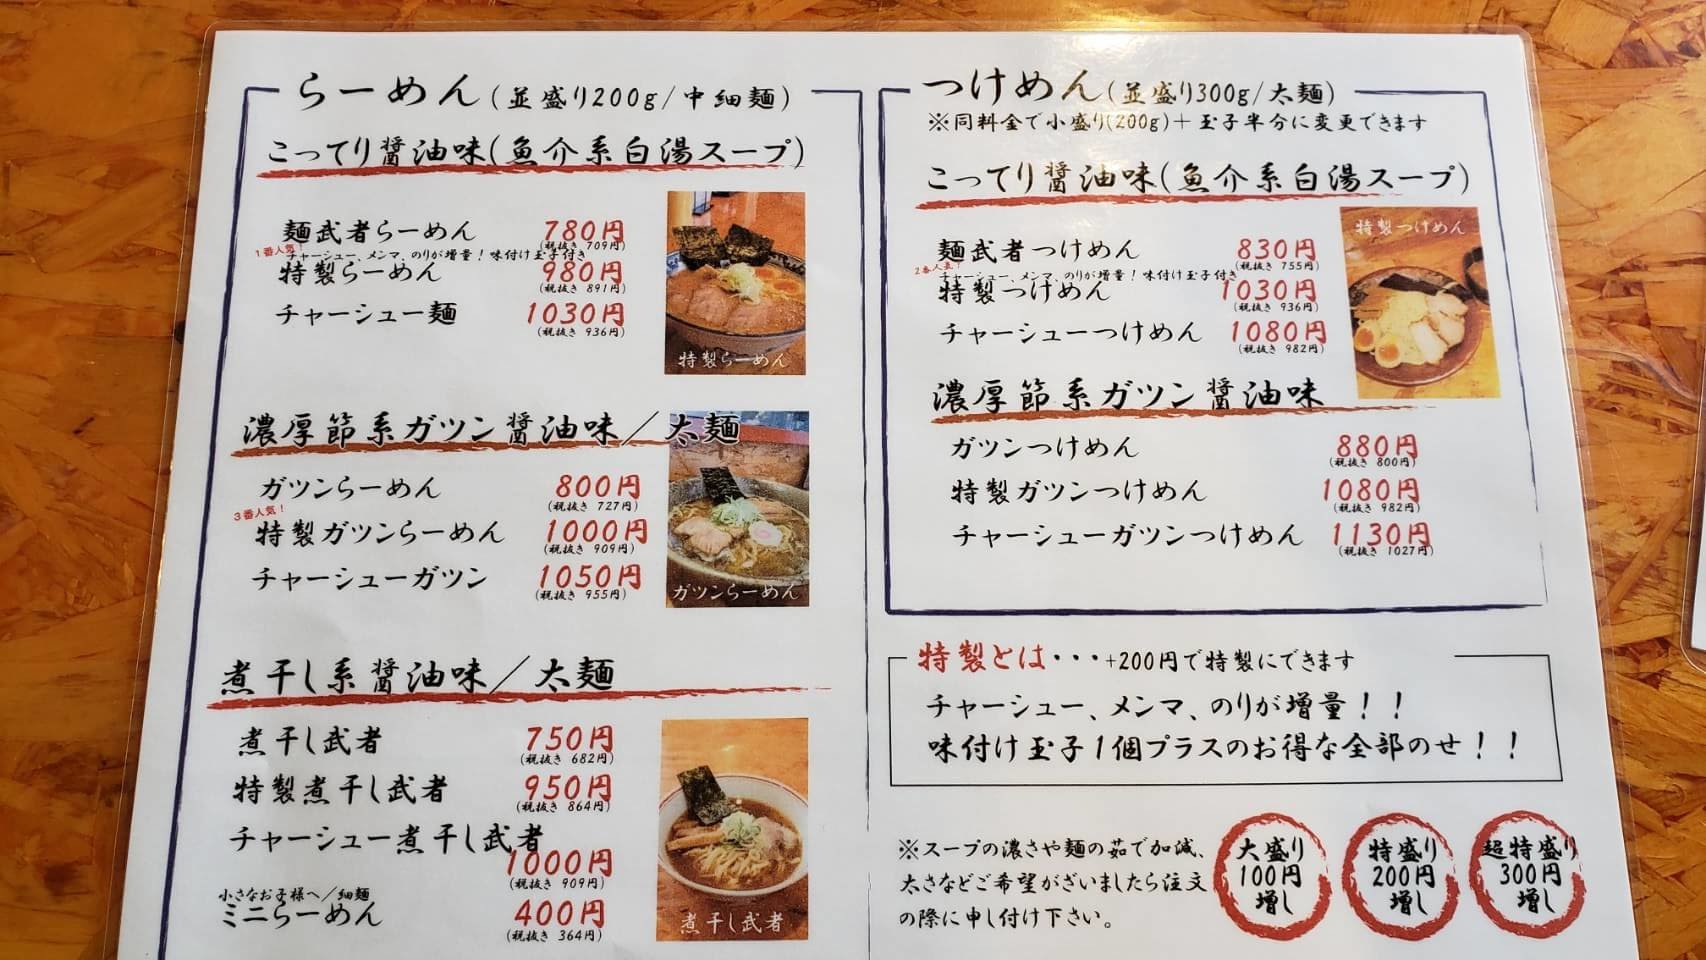 らーめん(並盛り200g/中細麺)
こってり醤油味(魚介系白湯スープ)
麺武者らーめん 780円
(税抜き 709円)
1番人気！
チャーシュー、メンマ、のりが増量！味付け玉子付き
特製らーめん 980円
(税抜き 891円)
チャーシュー麺 1030円
(税抜き 936円)
特製らーめん
濃厚節系ガツン醤油味／太麺
ガツンらーめん 800円
(税抜き 727円)
3番人気！
特製ガツンらーめん 1000円
(税抜き 909円)
チャーシューガツン 1050円
(税抜き 955円)
ガツンらーめん
煮干し系醤油味／太麺
煮干し武者 750円
(税抜き 682円)
特製煮干し武者 950円
(税抜き 864円)
チャーシュー煮干し武者
1000円
(税抜き 909円)
小さなお子様へ／細麺
ミニらーめん 400円
(税抜き 364円)
煮干し武者
つけめん(並盛り300g/太麺)
※同料金で小盛り(200g)＋玉子半分に変更できます
こってり醤油味(魚介系白湯スープ)
麺武者つけめん 830円
(税抜き 755円)
2番人気！
チャーシュー、メンマ、のりが増量！味付け玉子付き
特製つけめん 1030円
(税抜き 936円)
チャーシューつけめん 1080円
(税抜き 982円)
特製つけめん
濃厚節系ガツン醤油味
ガツンつけめん 880円
(税抜き 800円)
特製ガツンつけめん 1080円
(税抜き 982円)
チャーシューガツンつけめん 1130円
(税抜き 1027円)
特製とは・・・+200円で特製にできます
チャーシュー、メンマ、のりが増量！！
味付け玉子1個プラスのお得な全部のせ！！
※スープの濃さや麺の茹で加減、
太さなどご希望がざいましたら注文
の際に申し付け下さい。
大盛り
100円
増し
特盛り
200円
増し
超特盛り
300円
増し